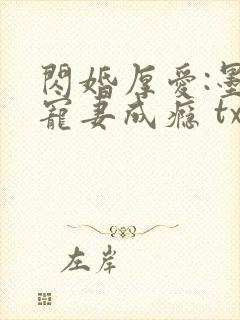 閃婚厚愛:墨
寵妻成癮 tx
左岸